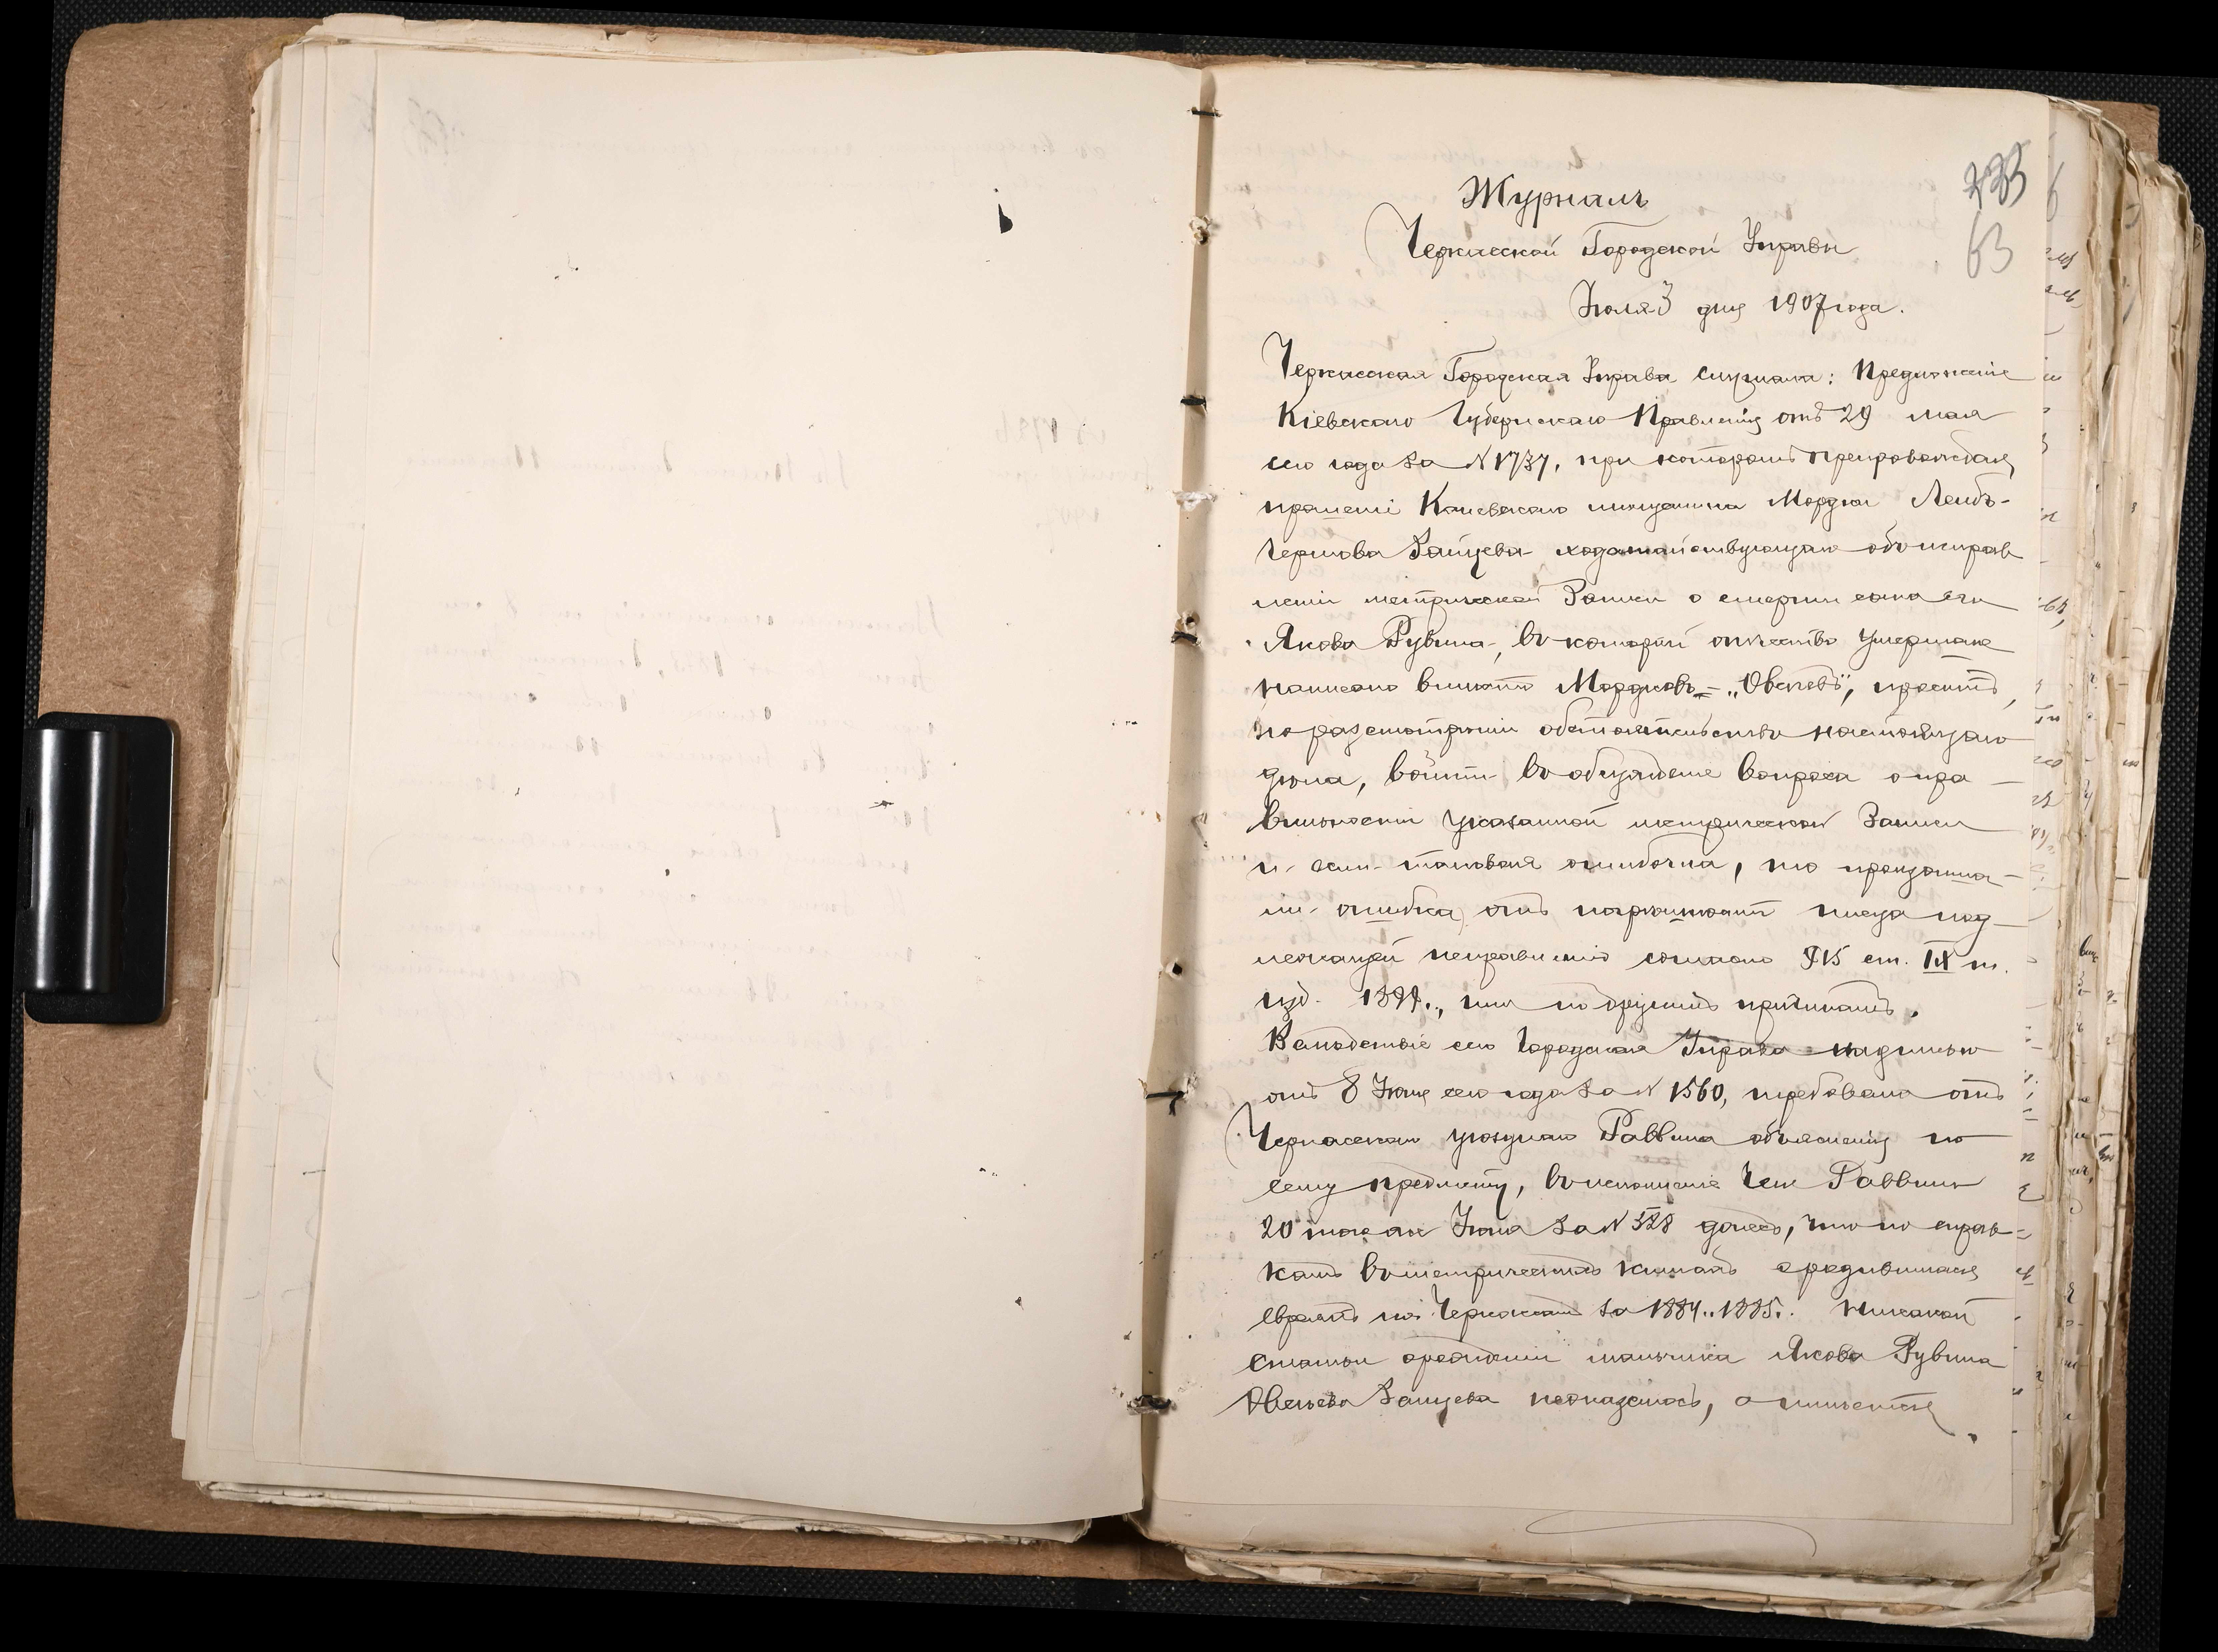 333
63
Журналъ
Черкасской Городской Управы
Іюля 3 дня 1907 года.
Черкасская Городская Управа слушала: Предложеніе
Кіевскаго Губернскаго Правленія отъ 29 мая
сего года за № 1737, при которомъ препровождая
прошеніе Каневскаго мѣщанина Мордки Лейбъ-
Зайцева ходатайствующаго объ исправ
леніи метрической записи о смерти сына его
Якова Рувина, въ которой отчество умершаго
написано вмѣсто Мордковъ - „Овсѣевъ", проситъ,
по разсмотрѣніи обстоятельствъ настоящаго
дѣла, войти въ обсужденіе вопроса о пра
вильности указанной метрической записи
и если таковая ошибочна, то произошла
ли ошибка отъ писца под
лежащей исправленію согласно 915 ст. IX т.
изд. 1899., или по другимъ причинамъ.
Вслѣдствіе сего Городская Управа надписью
отъ 8 Іюня сего года за № 1560, требовала отъ
Черкасскаго уѣзднаго Раввина объясненія по
сему предмету, во исполненіе чего Раввинъ
20 того же Іюня за № 528 донесъ, что по справ=
камъ въ метрическихъ книгахъ о родившихся
евреяхъ по г. Черкассамъ за 1884.. 1885.. никакой
статьи о рожденіи мальчика Якова Рувина
Овсѣева Зайцева не оказалось, а имѣется